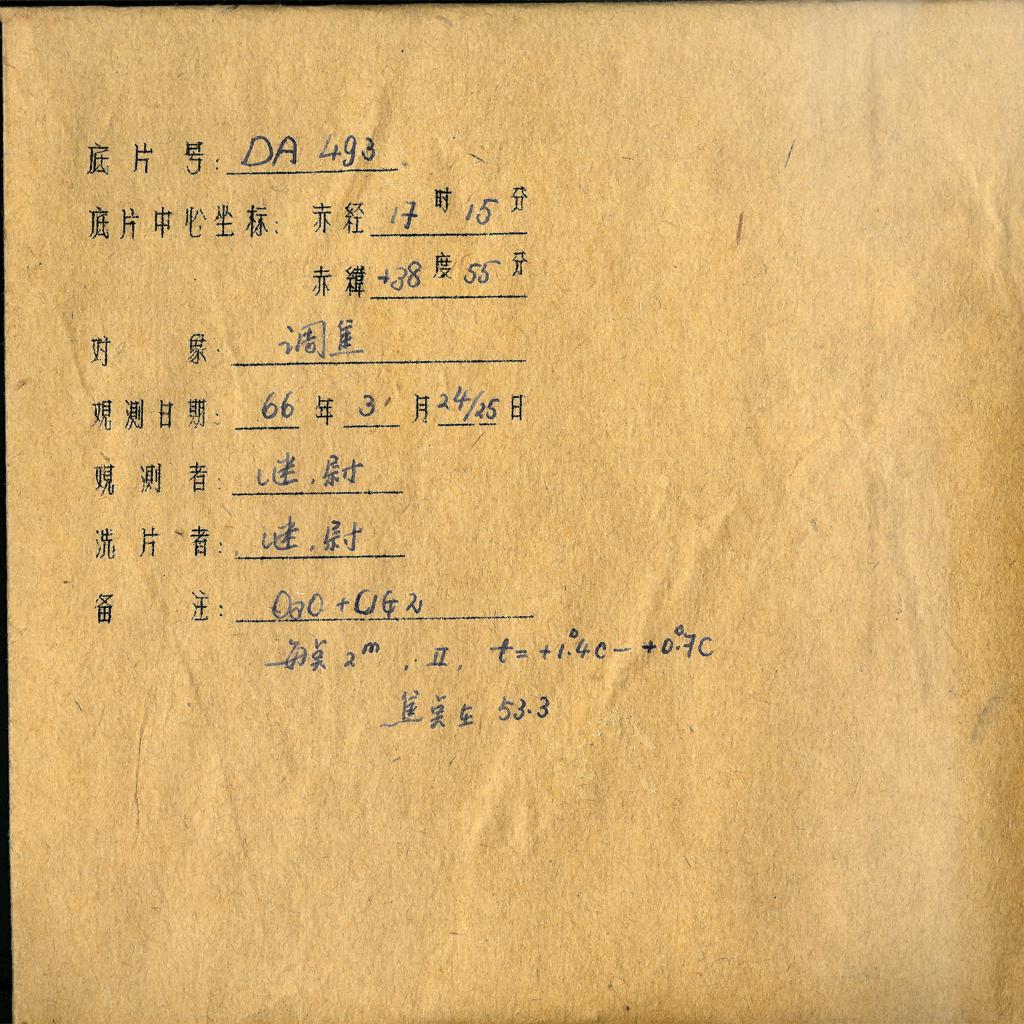 底片号: DA 493
底片中心坐标: 赤经 17时 15分
赤緯 +38度 55分
对象: 调焦
观测日期: 66年 3月 24/25日
观测者: 谜.尉
洗片者: 谜.尉
备注: OaO + UG2
每点 2ᵐ, II, t = +1°.4C — +0°.7C
焦点在 53.3